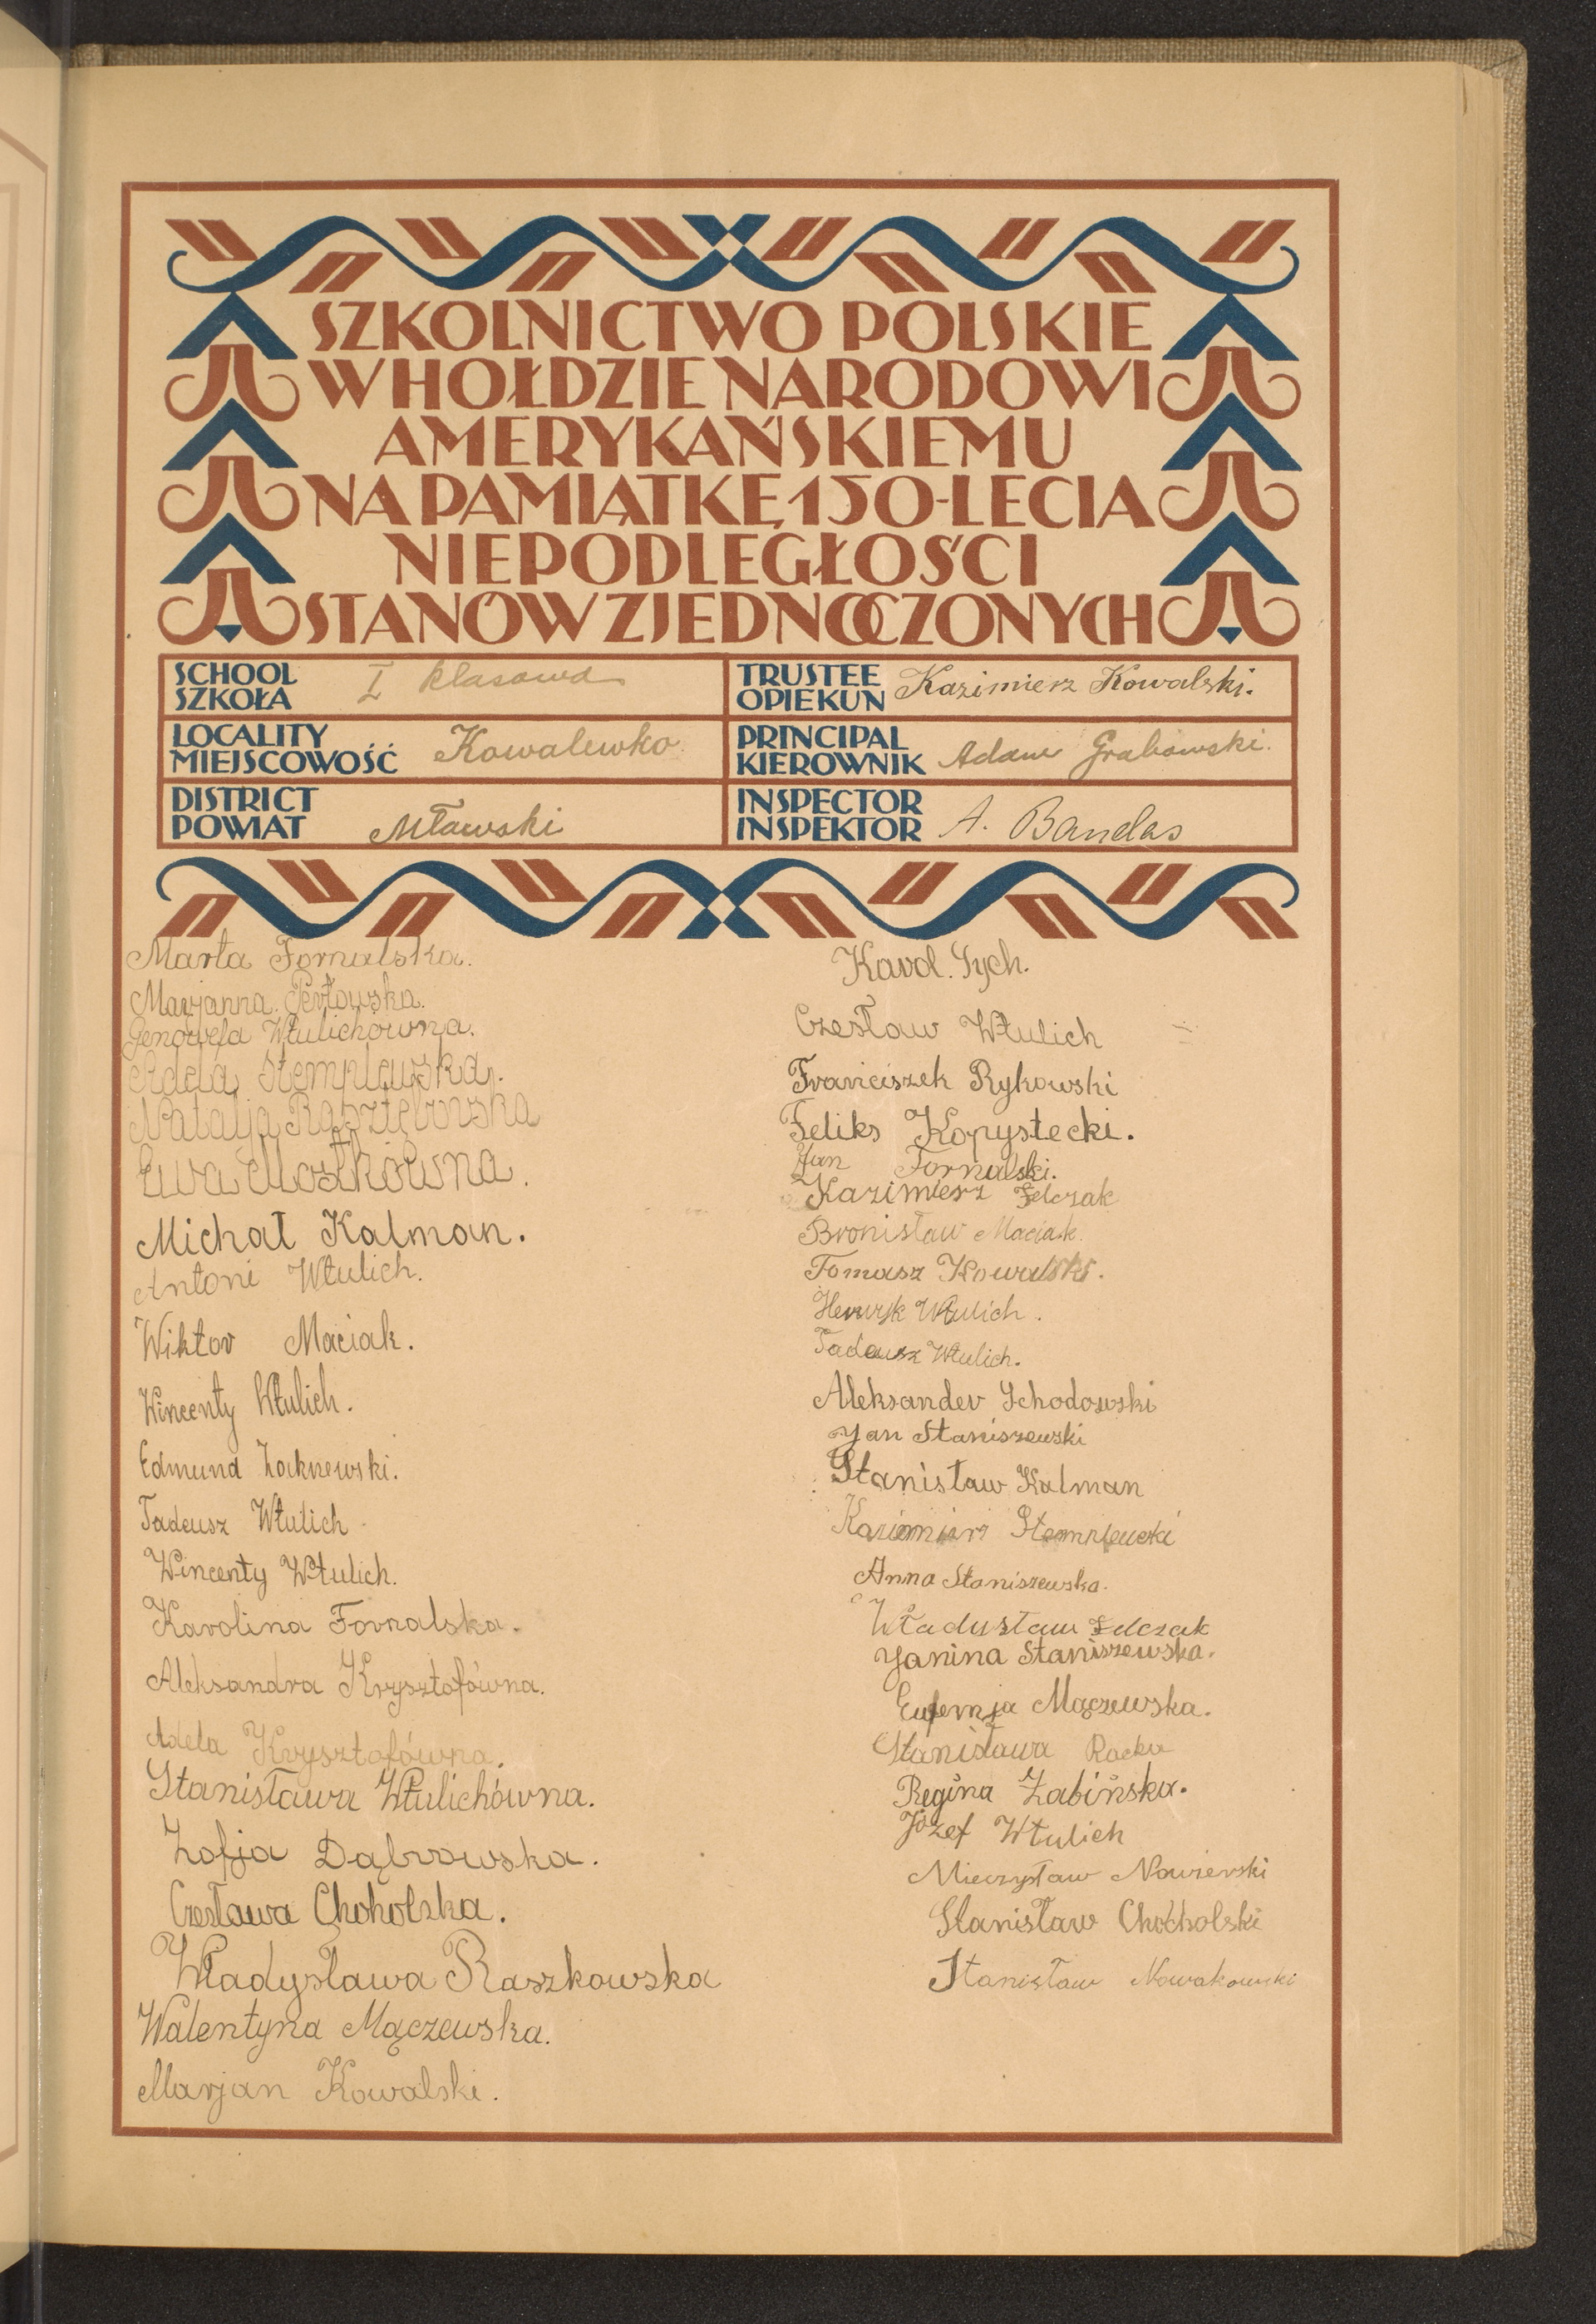 SZKOLNICTWO POLSKIE
W HOŁDZIE NARODOWI
AMERYKAŃSKIEMU
NA PAMIĄTKĘ 150-LECIA
NIEPODLEGŁOŚCI
STANÓW ZJEDNOCZONYCH
SCHOOL
SZKOŁA
I klasowa
TRUSTEE
OPIEKUN
Kazimierz Kowalski.
LOCALITY
MIEJSCOWOŚĆ
Kowalewko
PRINCIPAL
KIEROWNIK
Adam Grabowski.
DISTRICT
POWIAT
Mławski
INSPECTOR
INSPEKTOR
A. Bandas
Marta Fornalska.
Marjanna Perłowska.
Genowefa Wtulichówna.
Adela Stemplewska.
Natalja
Ewa
Michał Kalman.
Antoni Wtulich.
Wiktor Maciak.
Wincenty Wtulich.
Edmund
Tadeusz Wtulich
Wincenty Wtulich.
Karolina Fornalska.
Aleksandra Krysztofówna.
Adela Krysztofówna.
Stanisława Wtulichówna.
Zofja Dąbrowska.
Czesława Chokolska.
Władysława Raszkowska
Walentyna Mączewska.
Marjan Kowalski.
Karol. Tych.
Czesław Wtulich
Franciszek Rykowski
Feliks Kopystecki.
Jan Fornalski.
Kazimierz Felczak
Bronisław Maciak.
Tomasz Kowalski.
Henryk Wtulich.
Tadeusz Wtulich.
Aleksander Schodowski
Jan Staniszewski
Stanisław Kalman
Kazimierz
Anna Staniszewska.
Władusław Felczak
Janina Staniszewska.
Eufemja Mączewska.
Stanisława Racka
Regina Żabińska.
Józef Wtulich
Mieczysław
Stanisław Chocholski
Stanisław Nowakowski